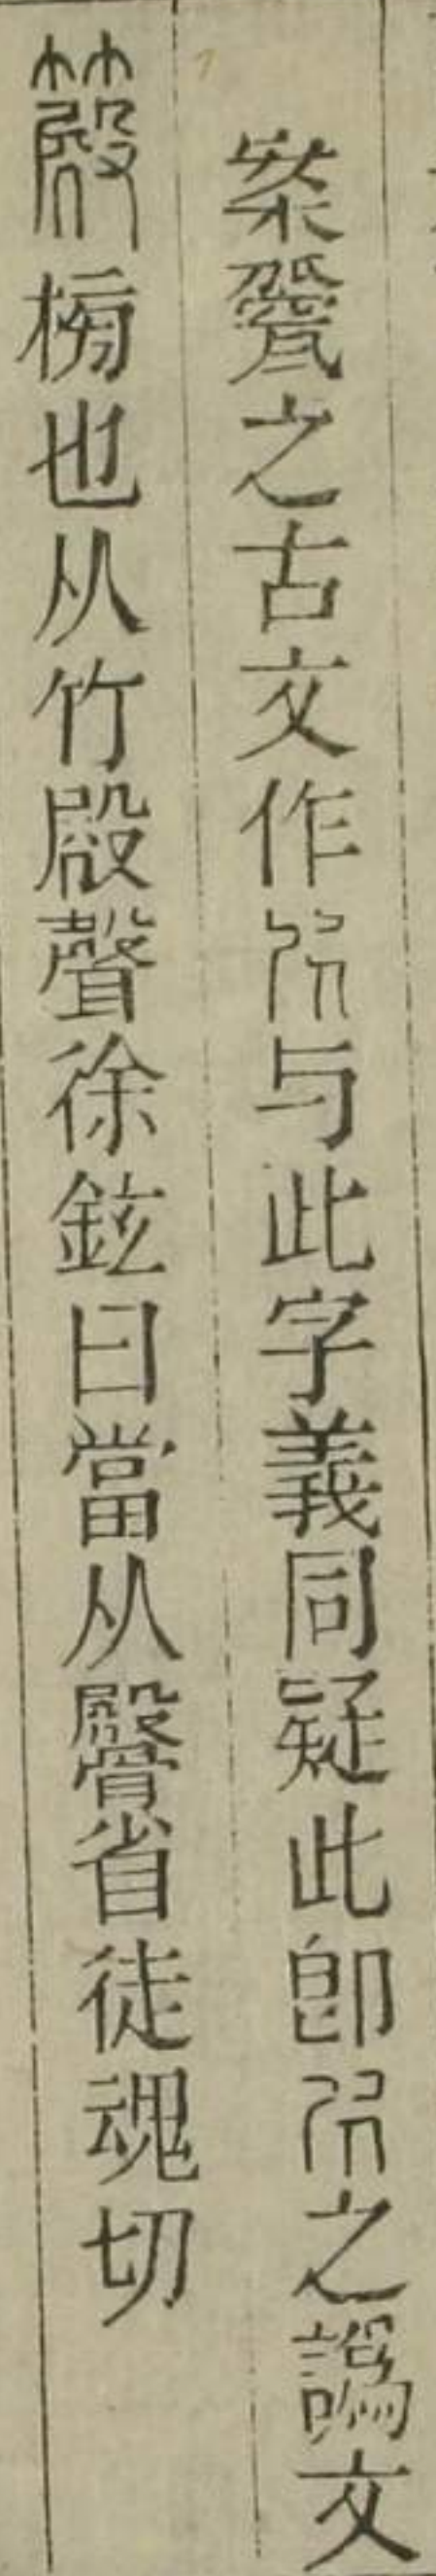 案之古文作与此字義同疑此即之譌文
𥴫榜也从竹殿聲徐鉉曰當从𩪡省徒魂切